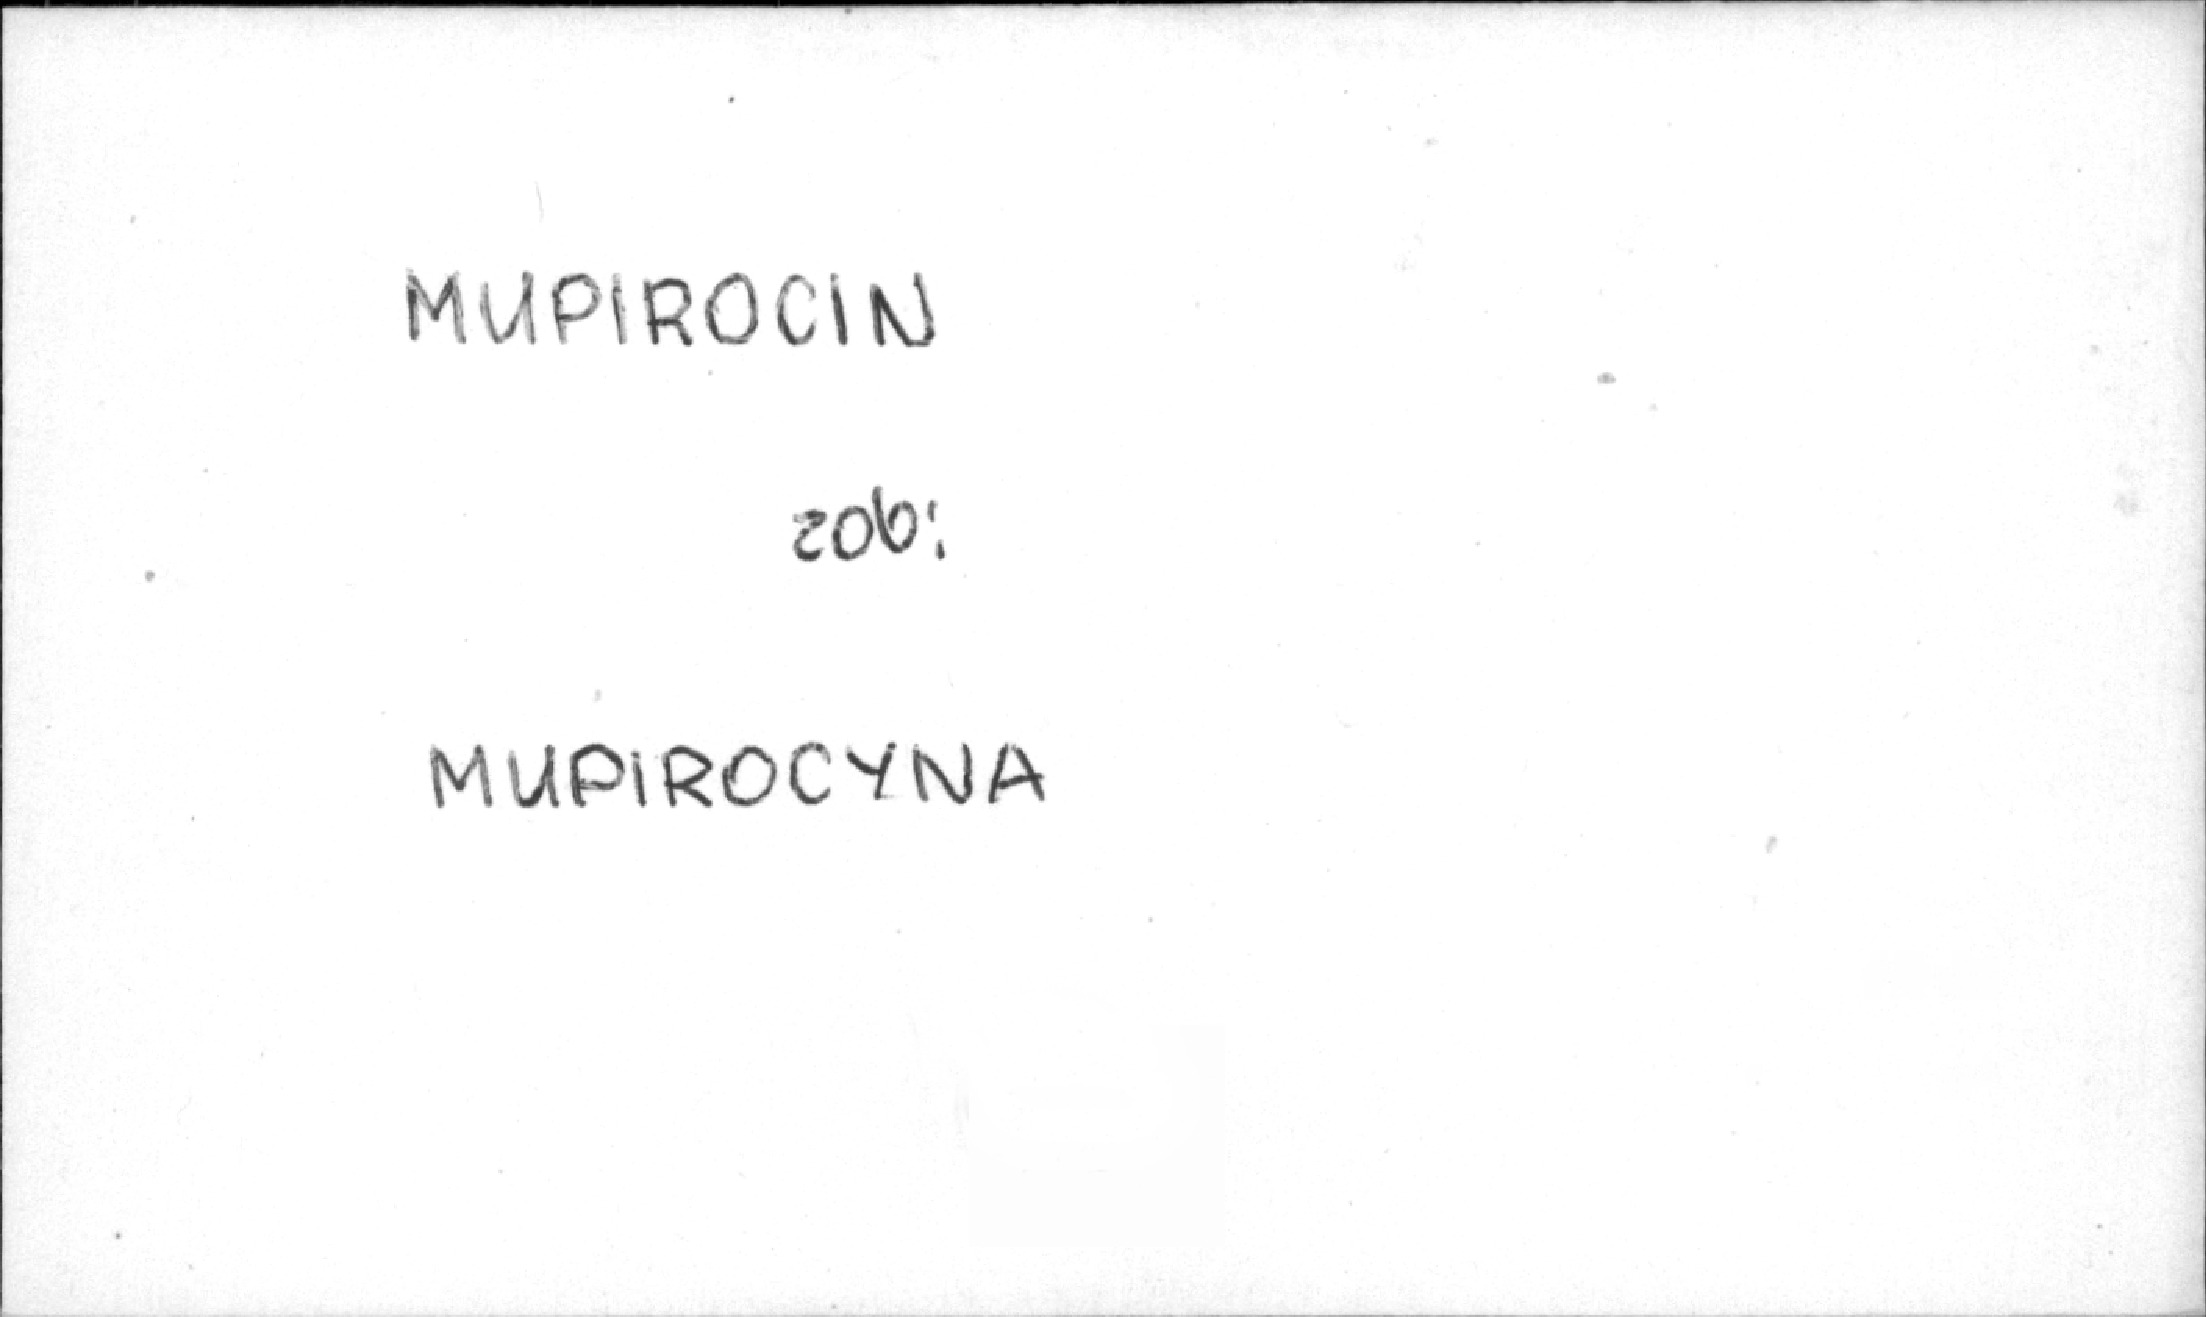 MUPIROCIN
zob:
MUPIROCYNA